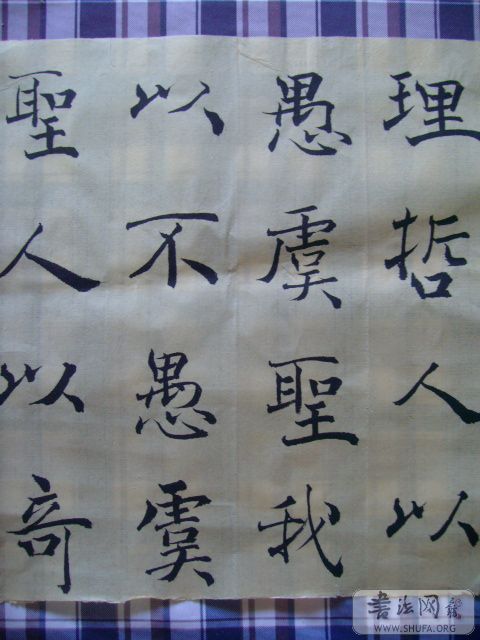 理哲人以
愚虞聖我
以不愚虞
聖人以奇
書法网
WWW.SHUFA.ORG